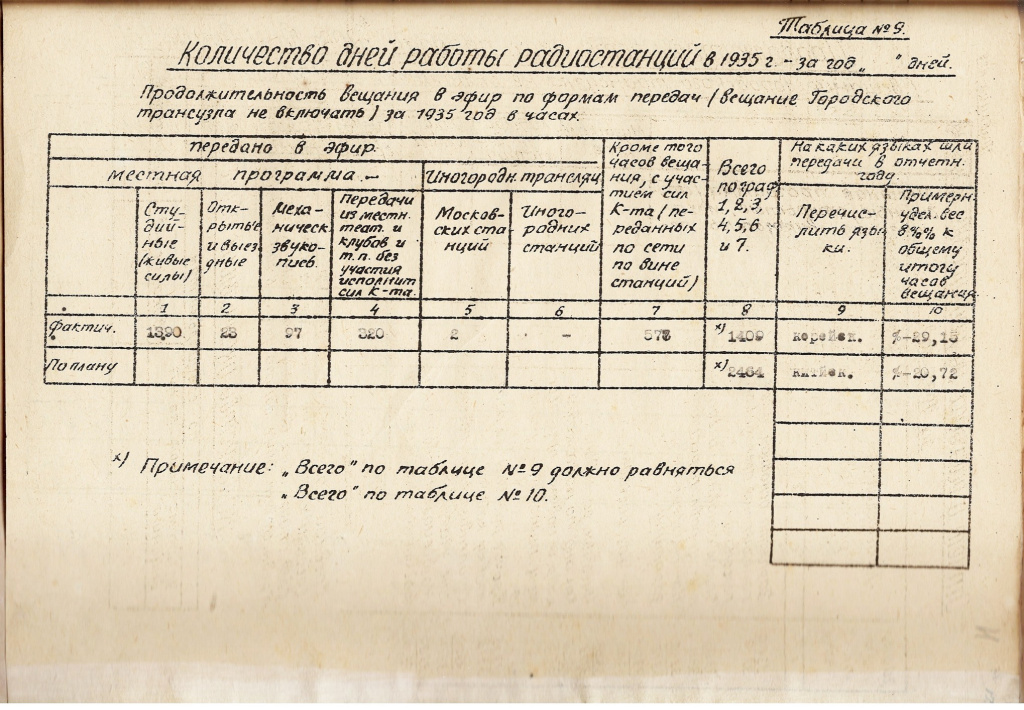 Таблица №9.
Количество дней работы радиостанций в 1935 г. - за год „ " дней.
Продолжительность вещания в эфир по формам передач (вещание Городского
трансузла не включать) за 1935 год в часах.
передано в эфир
местная программа.-
Иногородн. трансляц
Кроме того
часов веща-
ния, с учас-
тием сил
К-та (пе-
реданных
по сети
по вине
станций)
Всего
по граф.
1,2,3,
4,5,6
и 7.
На каких языках шли
передачи в отчетн.
году.
Сту-
дий-
ные
(живые
силы)
Отк-
рытые
и выез
дные
Меха-
ническ.
звуко-
пись.
Передачи
из местн.
теат. и
клубов и
т.п. без
участия
исполнит
сил К-та.
Москов-
ских ста
нций
Иного-
родних
станций
Перечис-
лить язы
ки.
Примерн
удел. вес
в %% к
общему
итогу
часов
вещания
1 2 3 4 5 6 7 8 9 10
фактич. 1390 23 97 320 2 - 578 х) 1409 корейск. %-29,15
По плану х) 2464 китйск. %-20,72
х) Примечание: „Всего" по таблице №9 должно равняться
„Всего" по таблице №10.